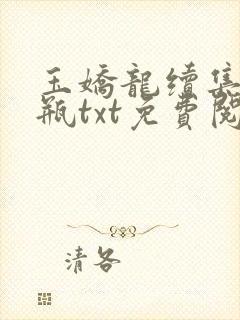 玉嬌龍續集
瓶txt免費閱
清各